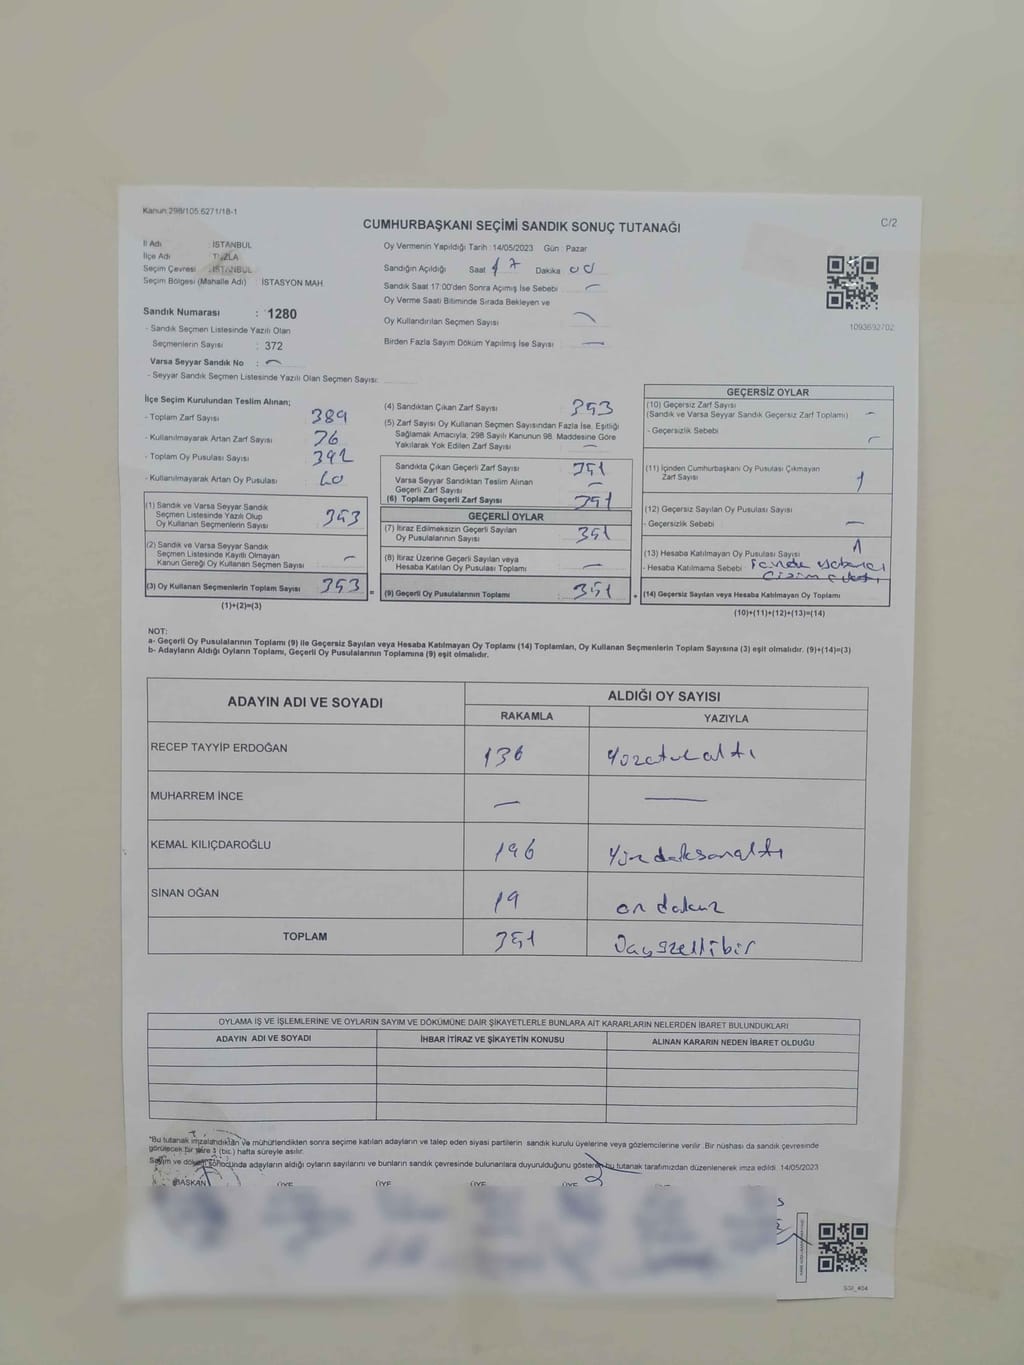 Kanun:298/105.6271/18-1
CUMHURBAŞKANI SEÇİMİ SANDIK SONUÇ TUTANAĞI
C/2
İl Adı : İSTANBUL
İlçe Adı : TUZLA
Seçim Çevresi : İSTANBUL
Seçim Bölgesi (Mahalle Adı) : İSTASYON MAH
Sandık Numarası : 1280
- Sandık Seçmen Listesinde Yazılı Olan
Seçmenlerin Sayısı : 372
Varsa Seyyar Sandık No : —
- Seyyar Sandık Seçmen Listesinde Yazılı Olan Seçmen Sayısı:
Oy Vermenin Yapıldığı Tarih : 14/05/2023 Gün : Pazar
Sandığın Açıldığı Saat 17 Dakika 00
Sandık Saat 17:00'den Sonra Açımış İse Sebebi —
Oy Verme Saati Bitiminde Sırada Bekleyen ve
Oy Kullandırılan Seçmen Sayısı —
Birden Fazla Sayım Döküm Yapılmış İse Sayısı —
1093692702
İlçe Seçim Kurulundan Teslim Alınan;
- Toplam Zarf Sayısı 389
- Kullanılmayarak Artan Zarf Sayısı
- Toplam Oy Pusulası Sayısı 392
- Kullanılmayarak Artan Oy Pusulası
(1) Sandık ve Varsa Seyyar Sandık
Seçmen Listesinde Yazılı Olup
Oy Kullanan Seçmenlerin Sayısı 353
(2) Sandık ve Varsa Seyyar Sandık
Seçmen Listesinde Kayıtlı Olmayan
Kanun Gereği Oy Kullanan Seçmen Sayısı —
(3) Oy Kullanan Seçmenlerin Toplam Sayısı 353 =
(1)+(2)=(3)
(4) Sandıktan Çıkan Zarf Sayısı 353
(5) Zarf Sayısı Oy Kullanan Seçmen Sayısından Fazla İse, Eşitliği
Sağlamak Amacıyla, 298 Sayılı Kanunun 98. Maddesine Göre
Yakılarak Yok Edilen Zarf Sayısı —
Sandıkta Çıkan Geçerli Zarf Sayısı 351
Varsa Seyyar Sandıktan Teslim Alınan
Geçerli Zarf Sayısı —
(6) Toplam Geçerli Zarf Sayısı 351
GEÇERLİ OYLAR
(7) İtiraz Edilmeksizin Geçerli Sayılan
Oy Pusulalarının Sayısı 351
(8) İtiraz Üzerine Geçerli Sayılan veya
Hesaba Katılan Oy Pusulası Toplamı —
(9) Geçerli Oy Pusulalarının Toplamı 351 +
GEÇERSİZ OYLAR
(10) Geçersiz Zarf Sayısı
(Sandık ve Varsa Seyyar Sandık Geçersiz Zarf Toplamı) —
- Geçersizlik Sebebi —
(11) İçinden Cumhurbaşkanı Oy Pusulası Çıkmayan
Zarf Sayısı 1
(12) Geçersiz Sayılan Oy Pusulası Sayısı
- Geçersizlik Sebebi —
(13) Hesaba Katılmayan Oy Pusulası Sayısı 1
- Hesaba Katılmama Sebebi
(14) Geçersiz Sayılan veya Hesaba Katılmayan Oy Toplamı
(10)+(11)+(12)+(13)=(14)
NOT:
a- Geçerli Oy Pusulalarının Toplamı (9) ile Geçersiz Sayılan veya Hesaba Katılmayan Oy Toplamı (14) Toplamları, Oy Kullanan Seçmenlerin Toplam Sayısına (3) eşit olmalıdır. (9)+(14)=(3)
b- Adayların Aldığı Oyların Toplamı, Geçerli Oy Pusulalarının Toplamına (9) eşit olmalıdır.
ADAYIN ADI VE SOYADI ALDIĞI OY SAYISI
RAKAMLA YAZIYLA
RECEP TAYYİP ERDOĞAN 136 Yüzotuzaltı
MUHARREM İNCE — —
KEMAL KILIÇDAROĞLU 196 Yüzdoksanaltı
SİNAN OĞAN 19 on dokuz
TOPLAM 351 Üçyüzellibir
OYLAMA İŞ VE İŞLEMLERİNE VE OYLARIN SAYIM VE DÖKÜMÜNE DAİR ŞİKAYETLERLE BUNLARA AİT KARARLARIN NELERDEN İBARET BULUNDUKLARI
ADAYIN ADI VE SOYADI İHBAR İTİRAZ VE ŞİKAYETİN KONUSU ALINAN KARARIN NEDEN İBARET OLDUĞU
"Bu tutanak imzalandıktan ve mühürlendikten sonra seçime katılan adayların ve talep eden siyasi partilerin sandık kurulu üyelerine veya gözlemcilerine verilir. Bir nüshası da sandık çevresinde
görülecek bir yere 1 (bir) hafta süreyle asılır.
Sayım ve döküm sonucunda adayların aldığı oyların sayılarını ve bunların sandık çevresinde bulunanlara duyurulduğunu gösteren bu tutanak tarafımızdan düzenlenerek imza edildi. 14/05/2023
BAŞKAN ÜYE ÜYE ÜYE ÜYE